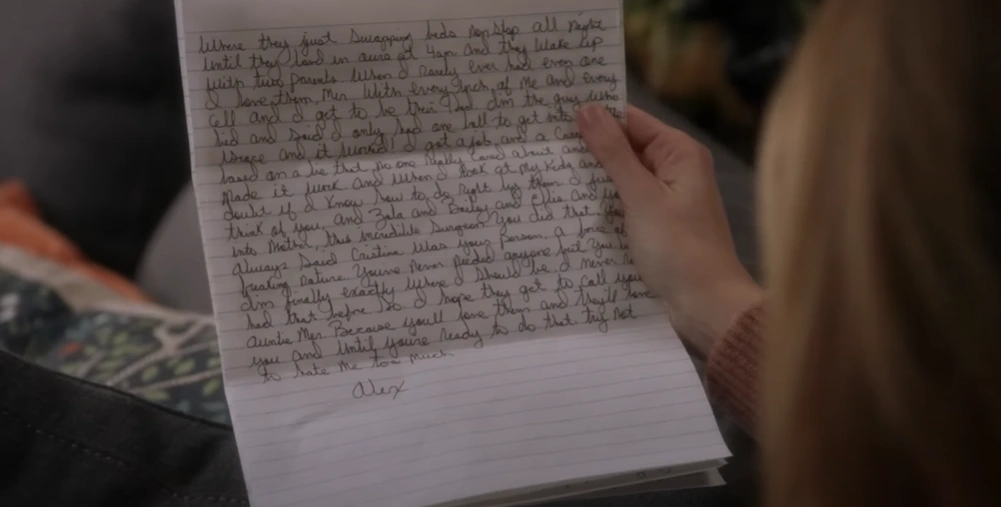 Where they just swapping beds nonstop all night
until they land in ours at 4am and they wake up
with two parents when I rarely ever had even one
I love them, Mer. With every inch of me and every
cell and I get to be their dad. I'm the guy who
lied and said I only had one ball to get into
and it worked! I got a job and a
based on a lie that no one really cared about and
made it work and when I look at my kids and
doubt if I know how to do right by them I
think of you, and Zola and Bailey and Ellis and
into Meredith, this incredible surgeon. You did that
always said Cristina was your person, a force of
freaking nature. You've never needed anyone but you
I'm finally exactly where I should be. I never
had that before. So I hope they get to call you
Auntie Mer. Because you'll love them and they'll love
you and until you're ready to do that try not
to hate me too much
Alex